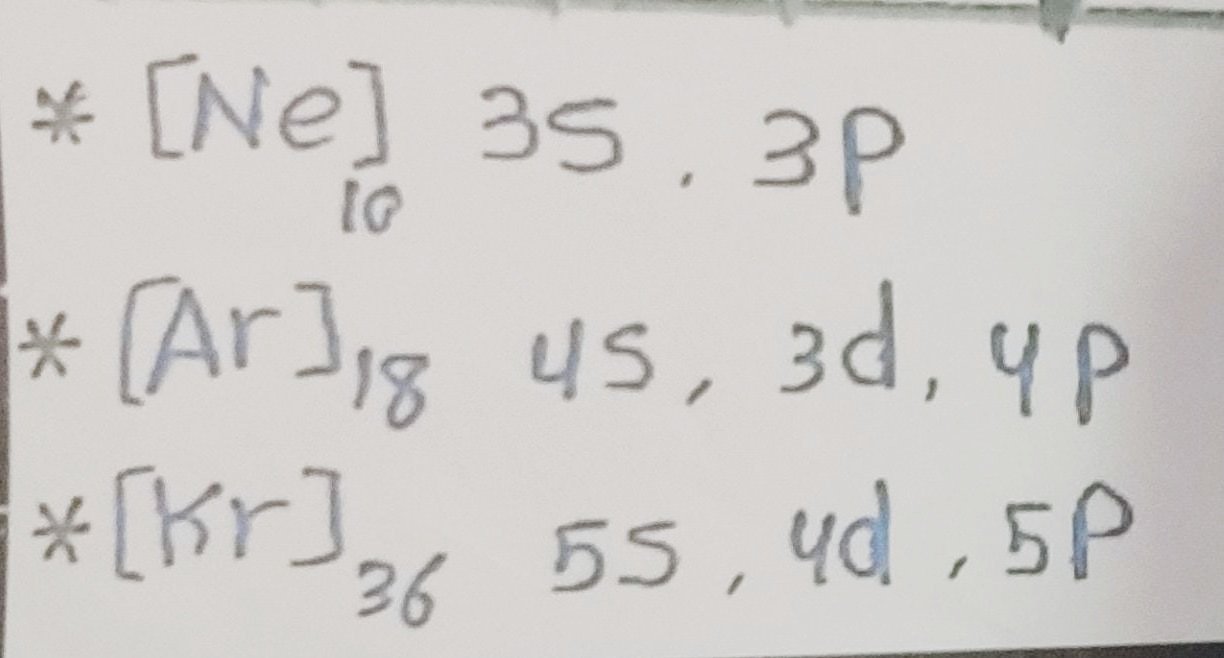 * [Ne]10 3s. 3p
* [Ar]18 4s, 3d, 4p
* [Kr]36 5s, 4d, 5p